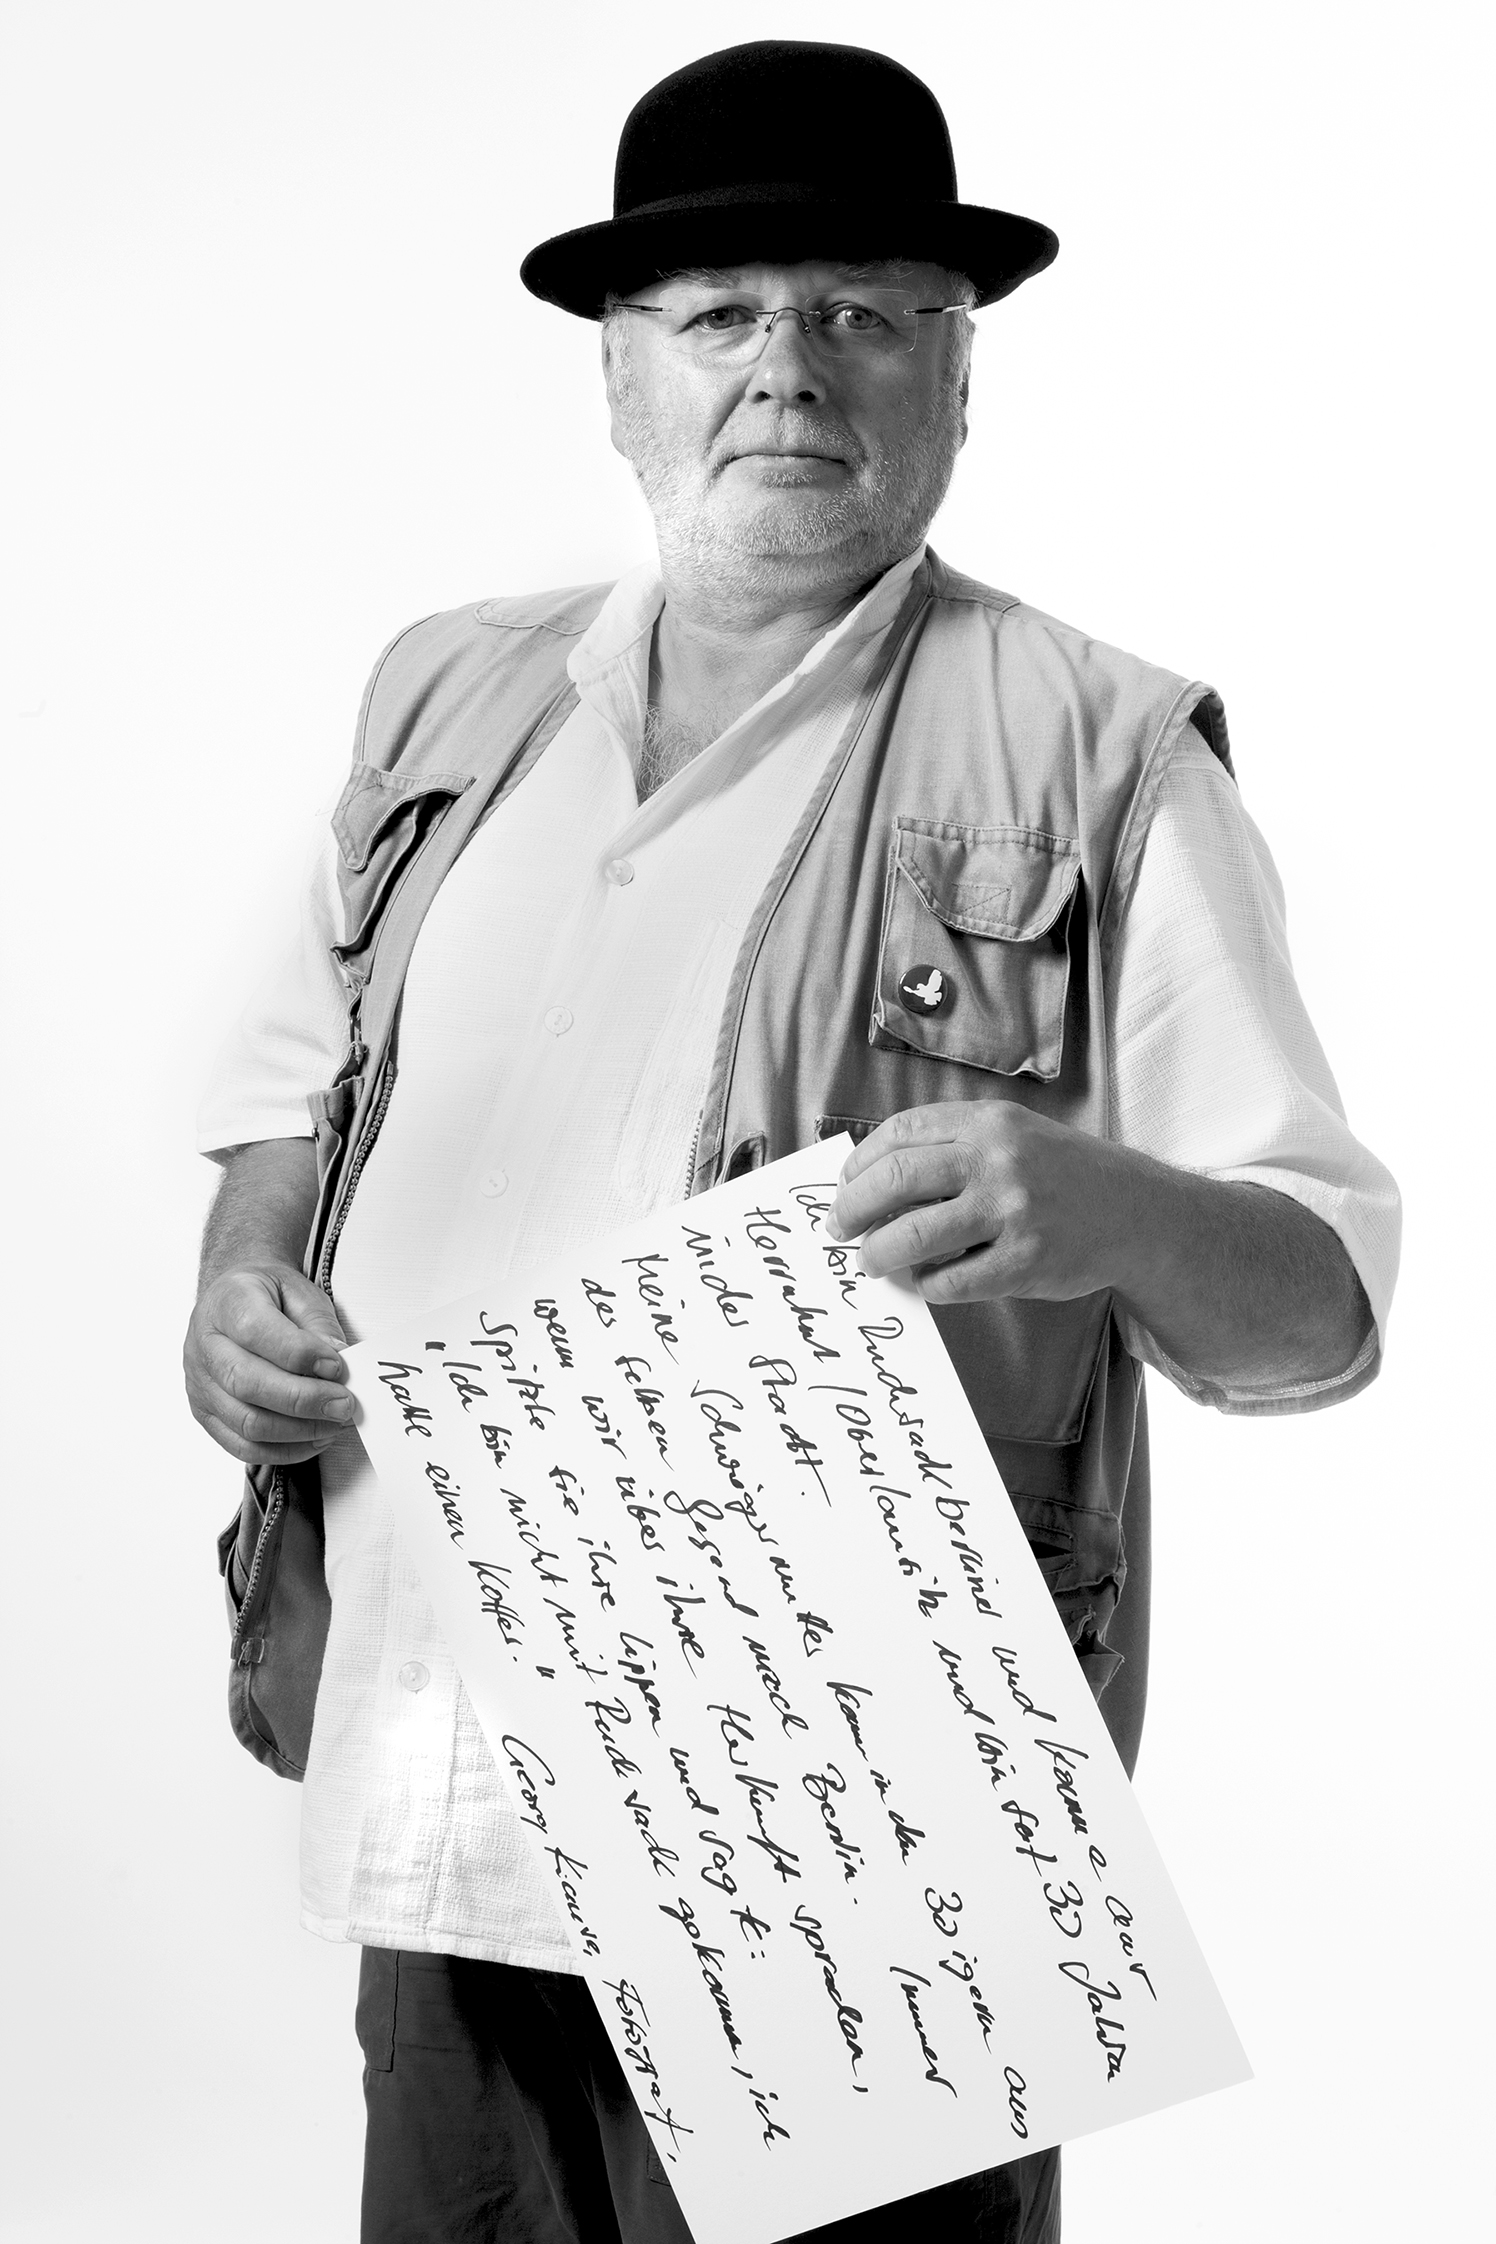 Ich bin Rucksackberliner und komme aus
Herrnhut / Oberlausitz und bin seit 30 Jahren
in der Stadt.
Meine Schwiegermutter kam in den 30igern aus
der selben Gegend nach Berlin. Immer
wenn wir über ihre Herkunft sprachen,
spitzte sie ihre Lippen und sagte:
"Ich bin nicht mit Rucksack gekommen, ich
hatte einen Koffer." Georg Krause, Fotograf,